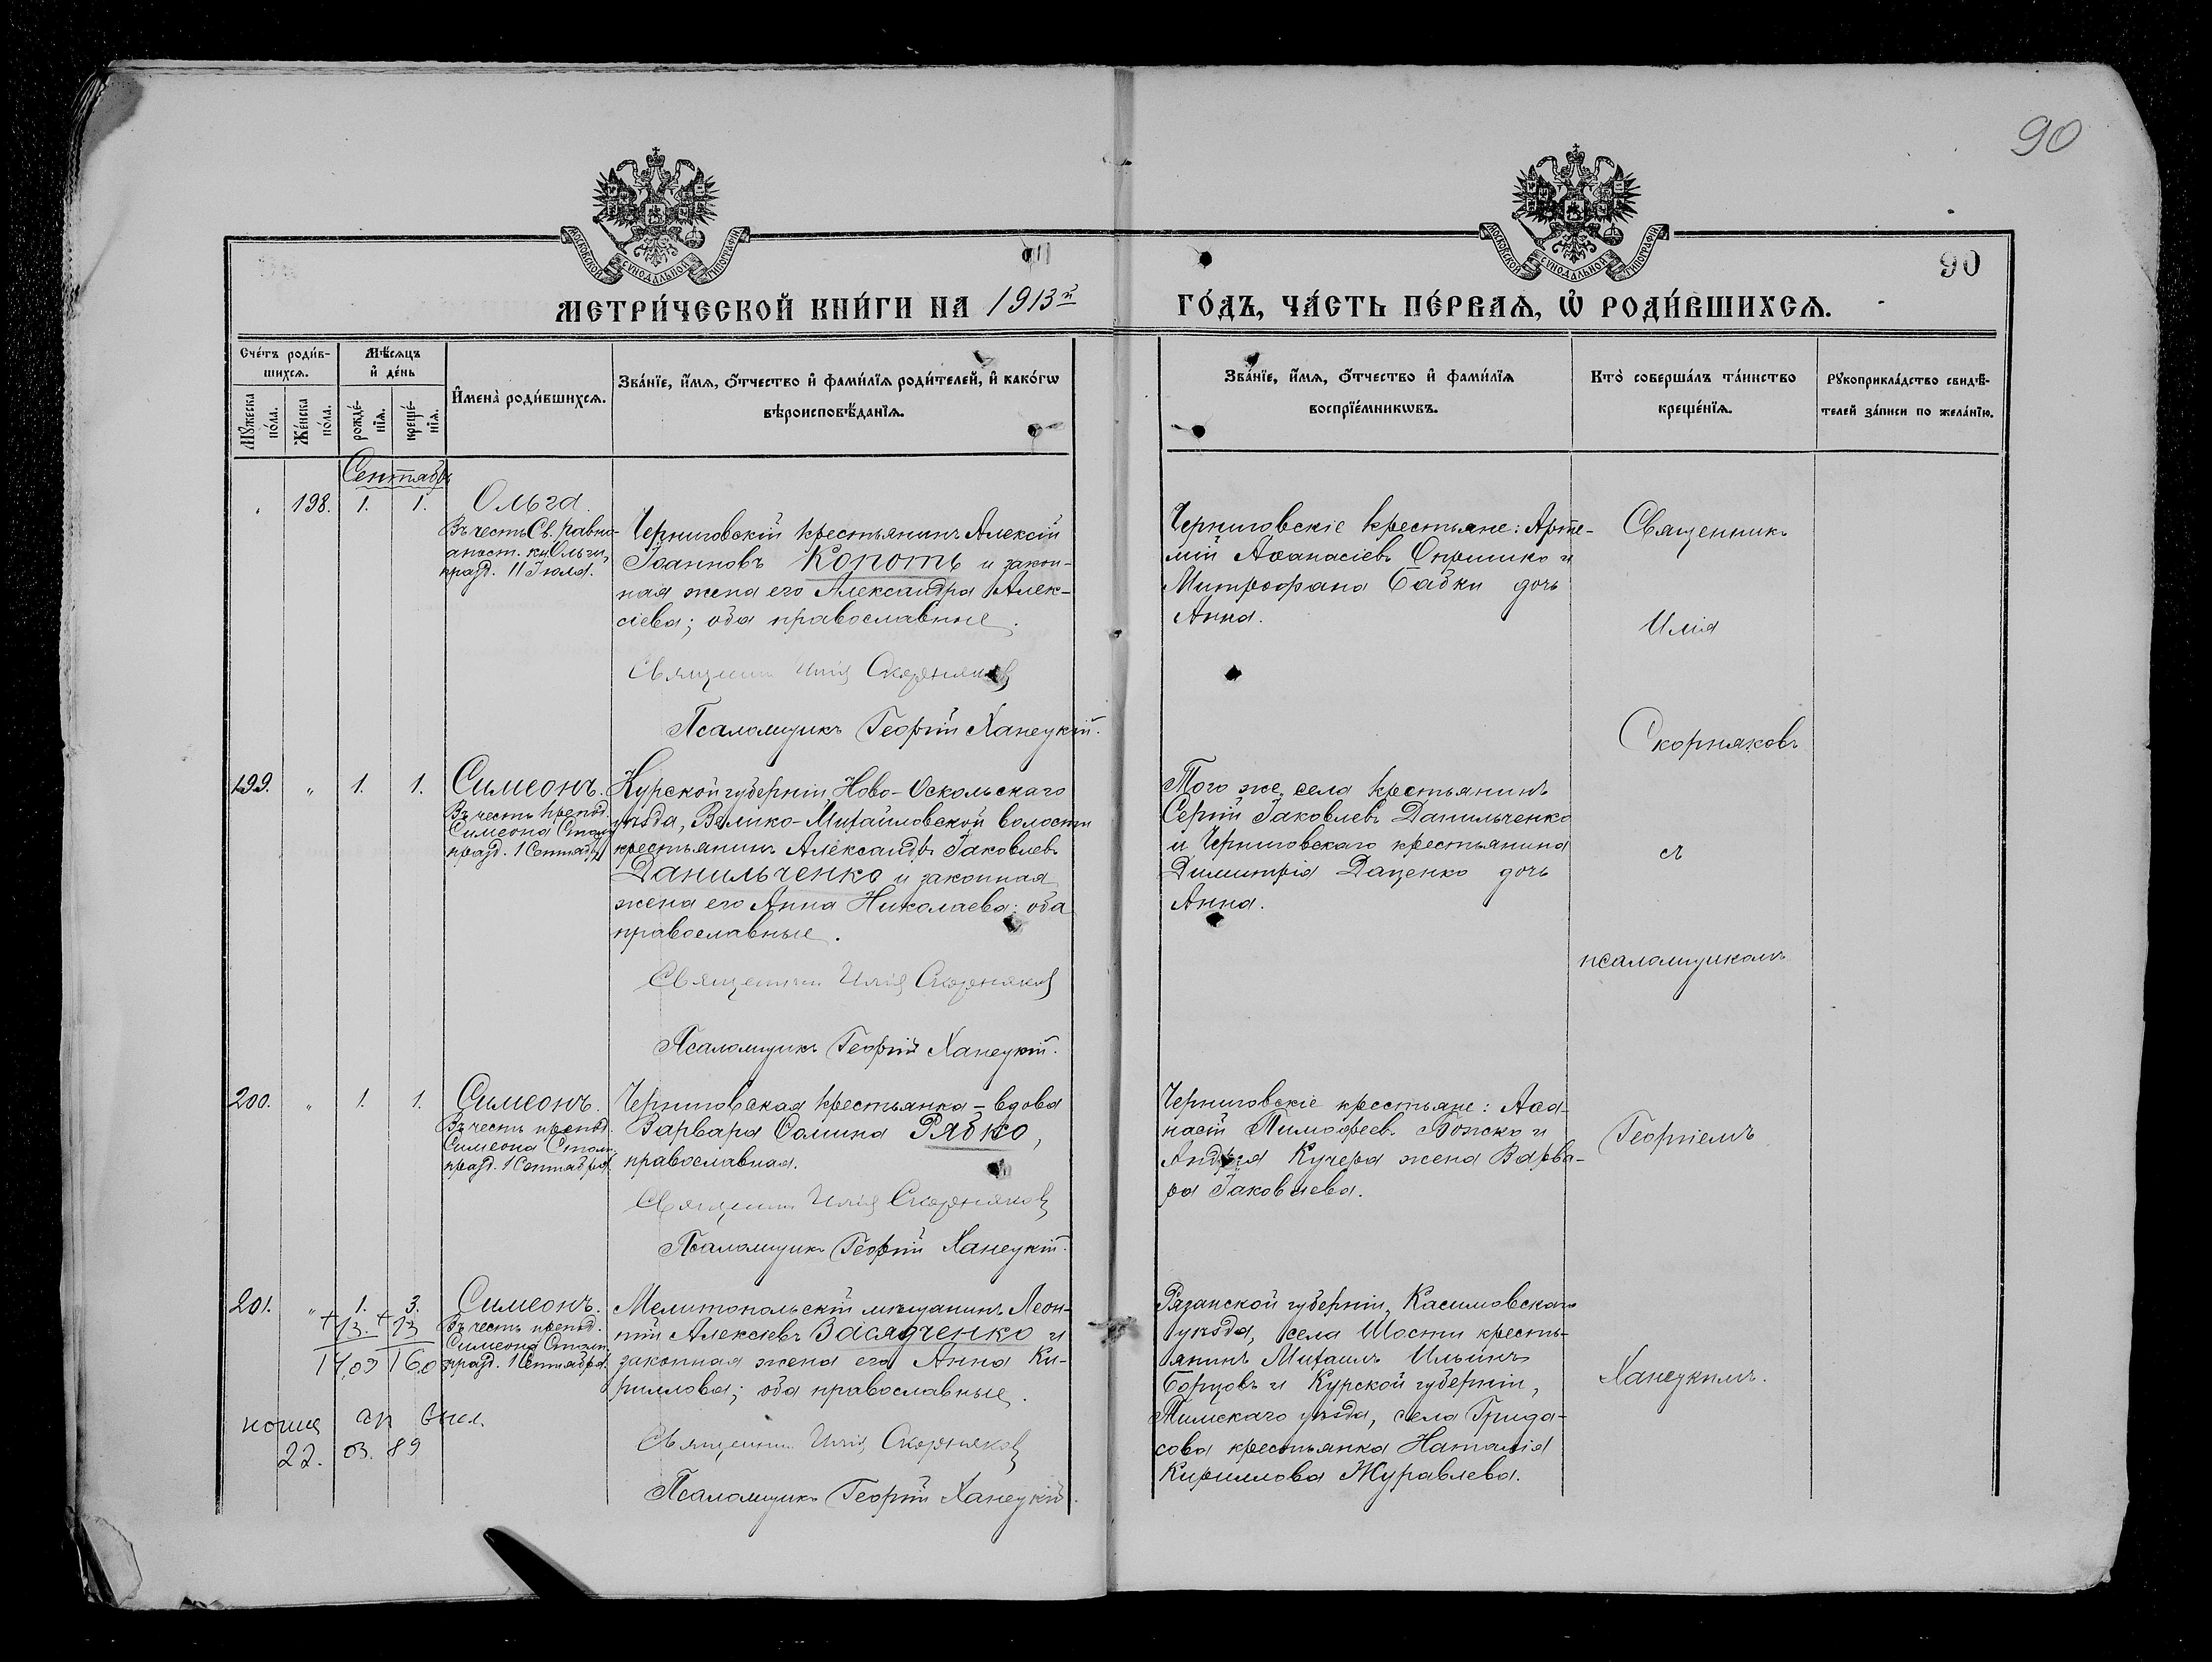 90
МОСКОВСКОЙ СѴНОДАЛЬНОЙ ТИПОГРАФІИ
МОСКОВСКОЙ СѴНОДАЛЬНОЙ ТИПОГРАФІИ
90
МЕТРИ́ЧЕСКОЙ КНИ́ГИ НА 1913й ГО́ДЪ, ЧА́СТЬ ПЕ́РВАѦ, Ѡ҆ РОДИ́ВШИХСѦ.
Сче́тъ роди́в-
шихсѧ.
Мꙋ́жеска по́ла.
Же́нска по́ла.
Мѣ́сѧцъ
и҆ де́нь
рожде́-
нїѧ.
креще́-
нїѧ.
И҆мена̀ роди́вшихсѧ.
Зва́нїе, и҆́мѧ, ѻ҆́тчество и҆ фами́лїѧ роди́телей, и҆ како́гѡ
вѣроисповѣ́данїѧ.
Зва́нїе, и҆́мѧ, ѻ҆́тчество и҆ фами́лїѧ
воспрїе́мникѡвъ.
Кто̀ соверша́лъ та́инство
креще́нїѧ.
Рꙋкоприкла́дство свидѣ́-
телей за́писи по жела́нїю.
Сентябрь
198. 1. 1.
Ольга.
Въ честь Св. Равно-
апост. кн. Ольги,
празд. 11 Іюля.
Черниговскій крестьянинъ Алексій
Іоанновъ Копоть и закон-
ная жена его Александра Алек-
сіева; оба православные.
Священникъ Илія Скорняковъ
Псаломщикъ Георгій Ханецкій.
Черниговскіе крестьяне: Арте-
мій Аѳанасіевъ Опришко и
Митрофана Бабки дочь
Анна.
Священникъ
Илія
Скорняковъ
199. " 1. 1.
Симеонъ.
Въ честь препод.
Симеона Столп.
празд. 1 Сентября
Курской губерніи, Ново-Оскольскаго
уѣзда, Велико-Михайловской волости
крестьянинъ Александръ Іаковлевъ
Данильченко и законная
жена его Анна Николаева: оба
православные.
Священникъ Илія Скорняковъ
Псаломщикъ Георгій Ханецкій.
Того же села крестьянинъ
Сергій Іаковлевъ Данильченко
и Черниговскаго крестьянина
Димитрія Даценко дочь
Анна.
съ
псаломщикомъ
200. " 1. 1.
Симеонъ.
Въ честь препод.
Симеона Столп.
празд. 1 Сентября.
Черниговская крестьянка-вдова
Варвара Сомина Рябко,
православная.
Священникъ Илія Скорняковъ
Псаломщикъ Георгій Ханецкій.
Черниговскіе крестьяне: Аѳа-
насій Тимоѳеевъ Божко и
Андрея Кучера жена Варва-
ра Іаковлева.
Георгіемъ
201. " 1. 3.
+13. +13
14.09 16.0
Симеонъ.
Въ честь препод.
Симеона Столп.
празд. 1 Сентября.
Мелитопольскій мѣщанинъ Леон-
тій Алексіевъ Засядченко и
законная жена его Анна Ки-
риллова; оба православные.
Священникъ Илія Скорняковъ
Псаломщикъ Георгій Ханецкій.
Рязанской губерніи, Касимовскаго
уѣзда, села Шости кресть-
янинъ Михаилъ Ильинъ
Борцовъ и Курской губерніи,
Тимскаго уѣзда, села Грида-
сова крестьянка Наталія
Кириллова Журавлева.
Ханецкимъ.
22. 03. 89